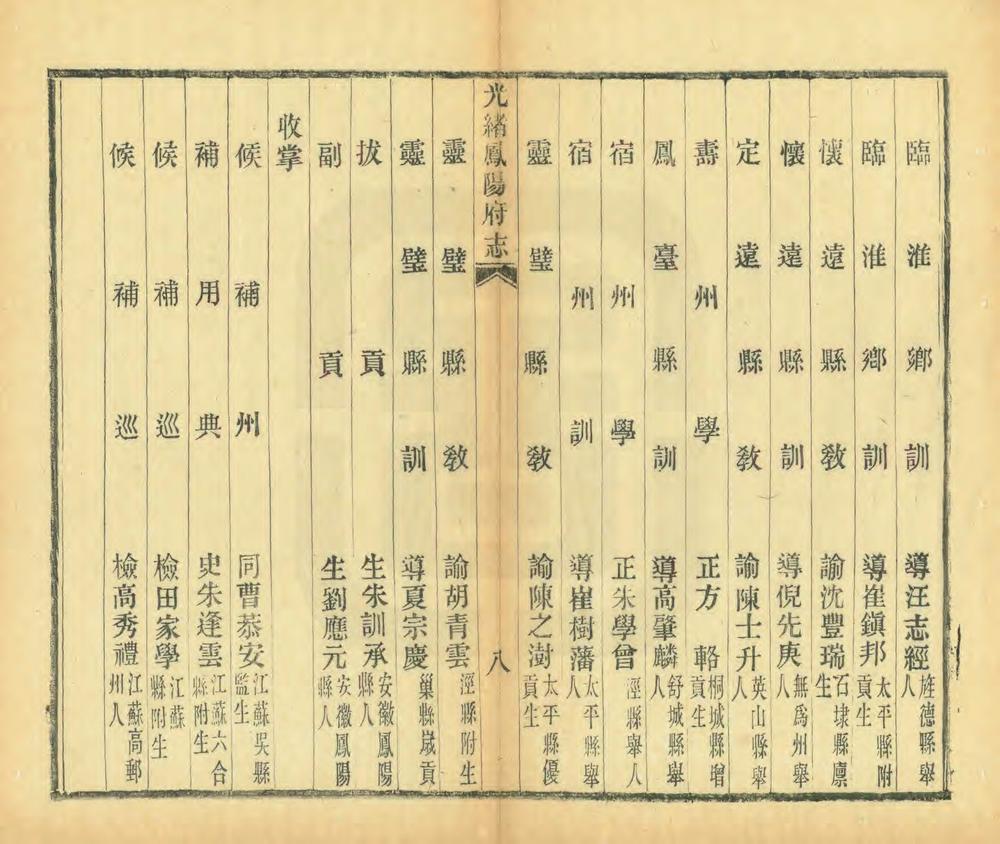 臨淮鄉訓導汪志經旌德縣舉人
臨淮鄉訓導崔鎭邦太平縣附貢生
懷遠縣敎諭沈豐瑞石埭縣廪生
懷遠縣訓導倪先庚無爲州舉人
定遠縣敎諭陳士升英山縣舉人
壽州學正方輅桐城縣增貢生
鳳臺縣訓導高肇麟舒城縣舉人
宿州學正朱學曾涇縣舉人
宿州訓導崔樹藩太平縣舉人
靈璧縣敎諭陳之澍太平縣優貢生
光緒鳳陽府志
八
靈璧縣敎諭胡青雲涇縣附生
靈璧縣訓導夏宗慶巢縣歲貢
拔貢生朱訓承安徽鳳陽縣人
副貢生劉應元安徽鳳陽縣人
收掌
候補州同曹恭安江蘇吳縣監生
補用典史朱逢雲江蘇六合縣附生
候補巡檢田家學江蘇縣附生
候補巡檢高秀禮江蘇高郵州人